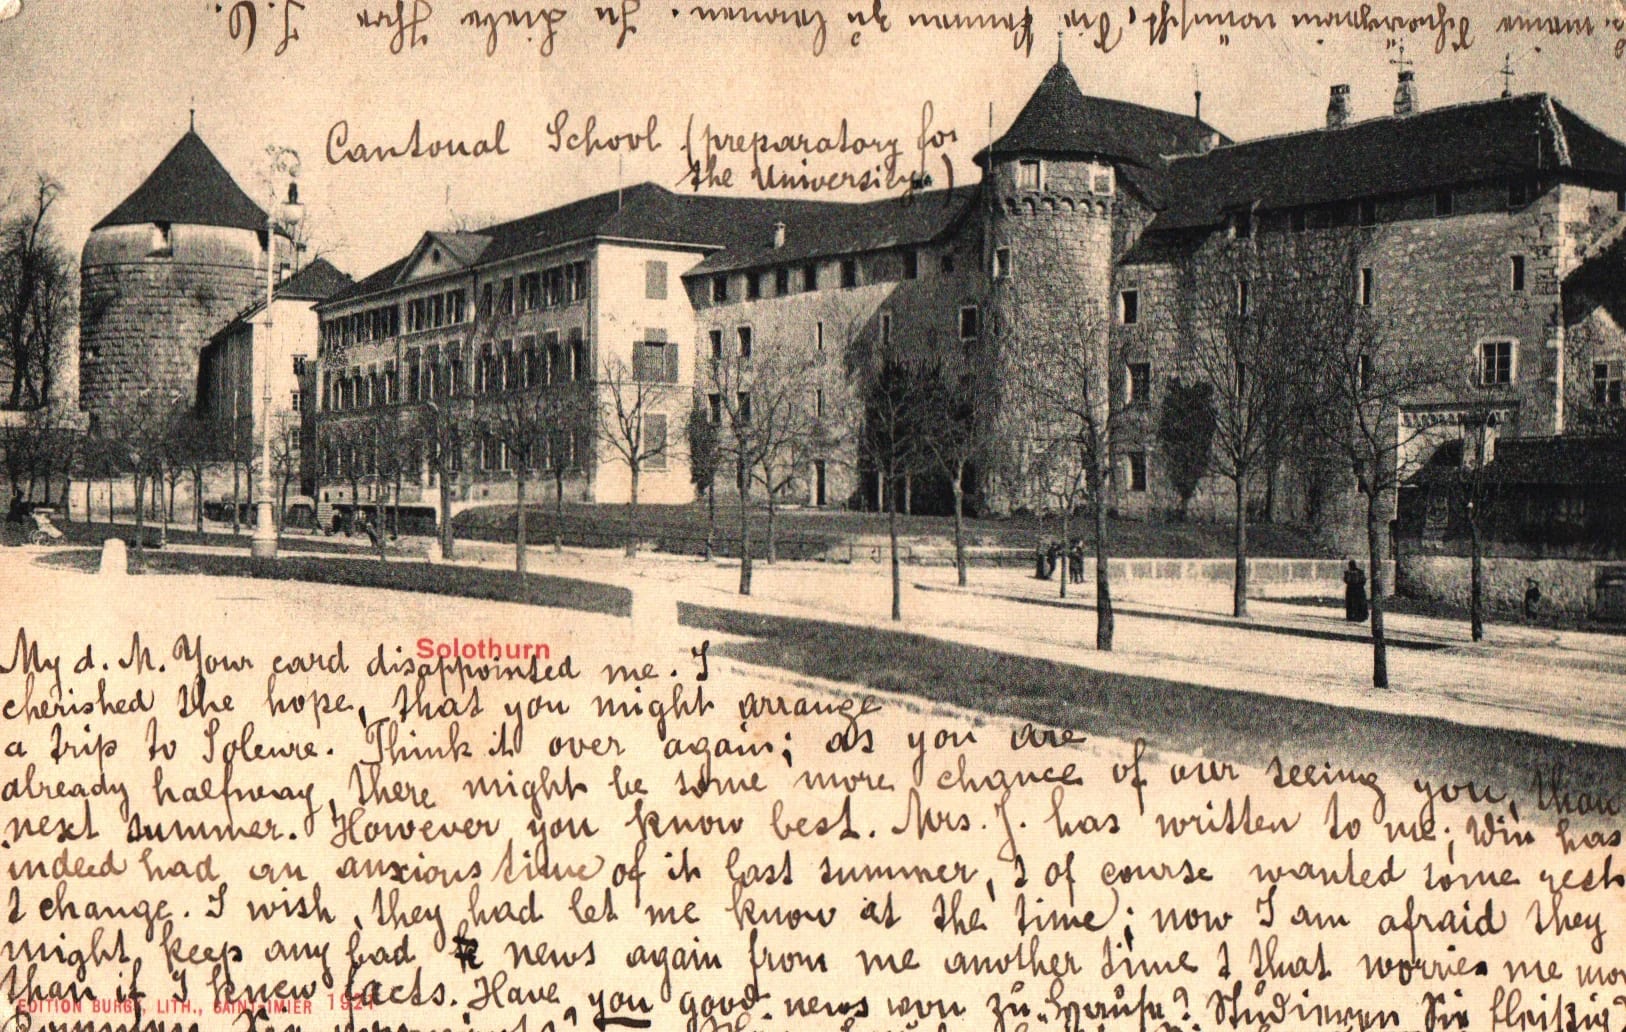 meine Schwägerin wünscht, Sie kennen zu lernen. In Liebe Ihre J. C.
Cantonal School (preparatory for
the University.)
Solothurn
My d. M. Your card disappointed me. I
cherished the hope, that you might arrange
a trip to Soleure. Think it over again; as you are
already halfway, there might be some more chance of our seeing you, than
next summer. However you know best. Mrs. J. has written to me; Win has
indeed had an anxious time of it last summer, & of course wanted some rest
& change. I wish, they had let me know at the time; now I am afraid they
might keep any bad news again from me another time & that worries me more
than if I knew facts. Have you good news von zu Hause? Studieren Sie fleißig?
EDITION BURGY, LITH., SAINT-IMIER 1921